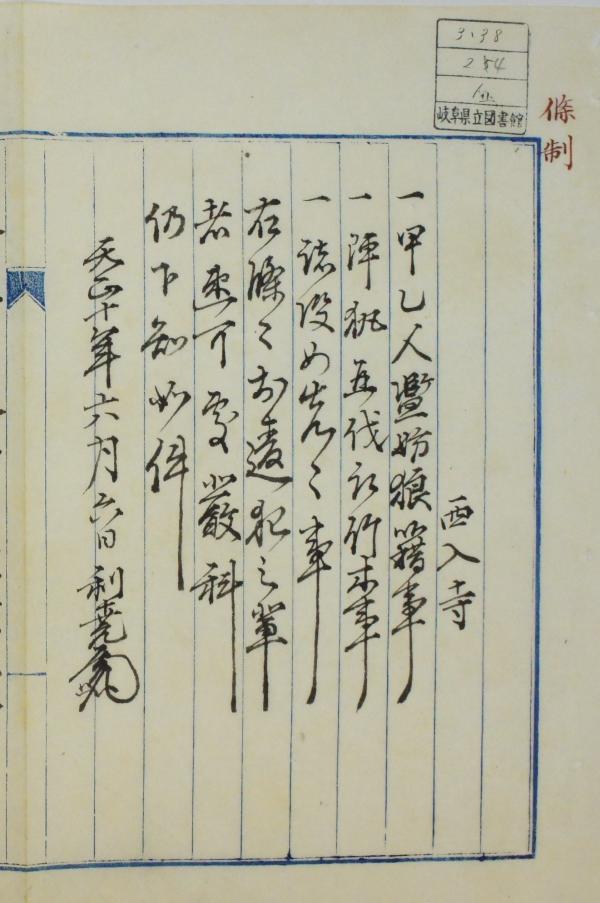 3.38
254
岐阜県立図書館
條制
西入寺
一甲乙人濫妨狼籍事
一陣執並伐取竹木事
一諸役如先々事
右條々於違犯之輩
者速可處嚴科
仍下知如件
天正十年六月六日 利堯